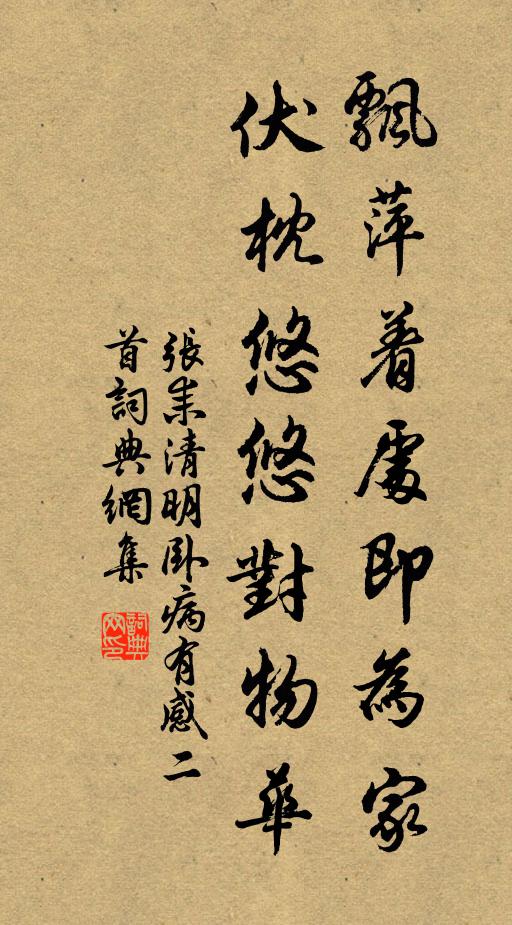 飄萍着處即為家
伏枕悠悠對物華
張耒清明臥病有感二
首詞典網集
詞典
网印